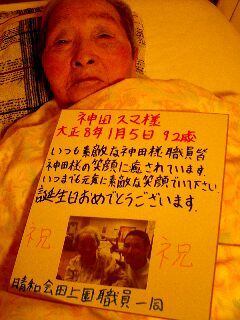 神田 スマ様
大正8年1月5日 92歳
いつも素敵な神田様 職員皆
神田様の笑顔に癒されています
いつまでも元気に素敵な笑顔でいて下さい
誕生日おめでとうございます.
祝 祝
晴和会田上園職員一同